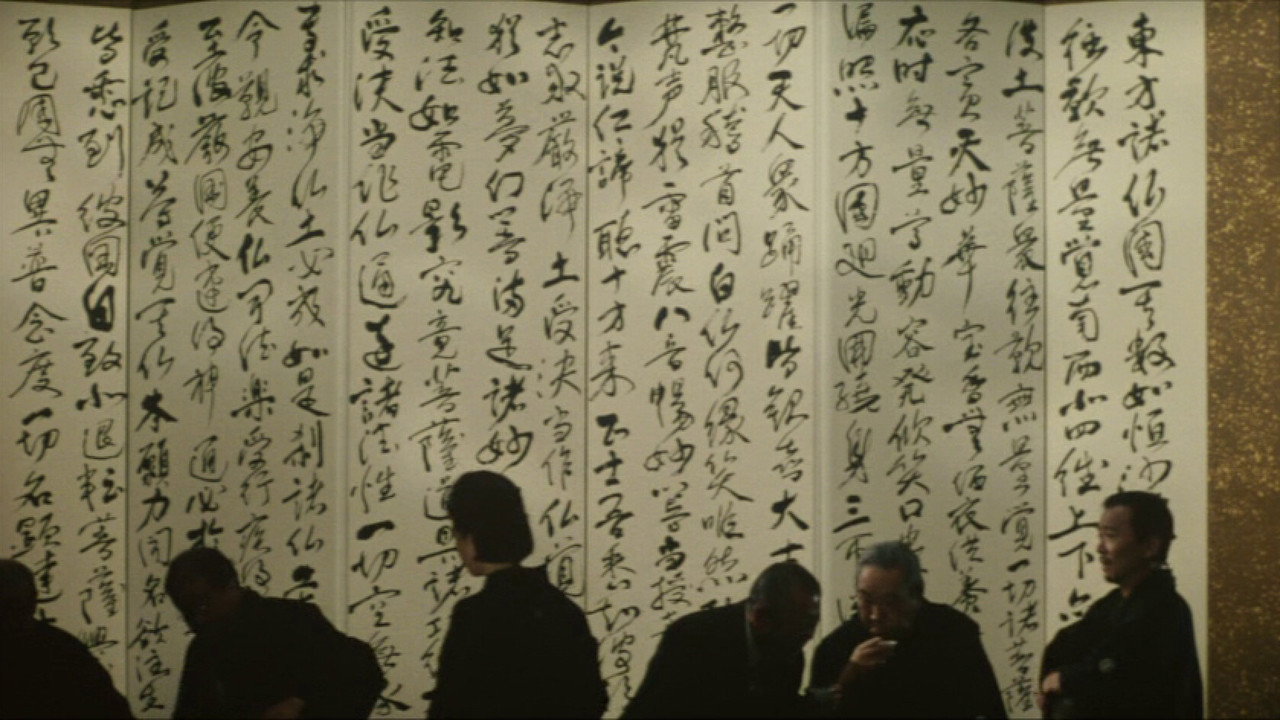 東方諸仏国其数如恒沙
往覲無量覚南西北四維上下
彼土菩薩衆往覲無量覚一切諸菩薩
各齎天妙華宝香無価衣供養
応時無量尊動容発欣笑口出
遍照十方国廻光囲繞身三帀
一切天人衆踊躍皆歓喜大士
整服稽首問白仏何縁笑唯然
梵声猶雷震八音暢妙響当授
今説仁諦聴十方来正士吾悉知彼願
志求厳浄土受決当作仏覚
猶如夢幻響満足諸妙
知法如電影究竟菩薩道具諸功
受決当作仏通達諸法性一切空無我
専求浄仏土必成如是刹諸仏告
令覲安養仏聞法楽受行疾得
至彼厳国便速得神通必於
受記成等覚其仏本願力聞名欲往生
皆悉到彼国自致不退転菩薩興
願己国無異普念度一切名顕達十